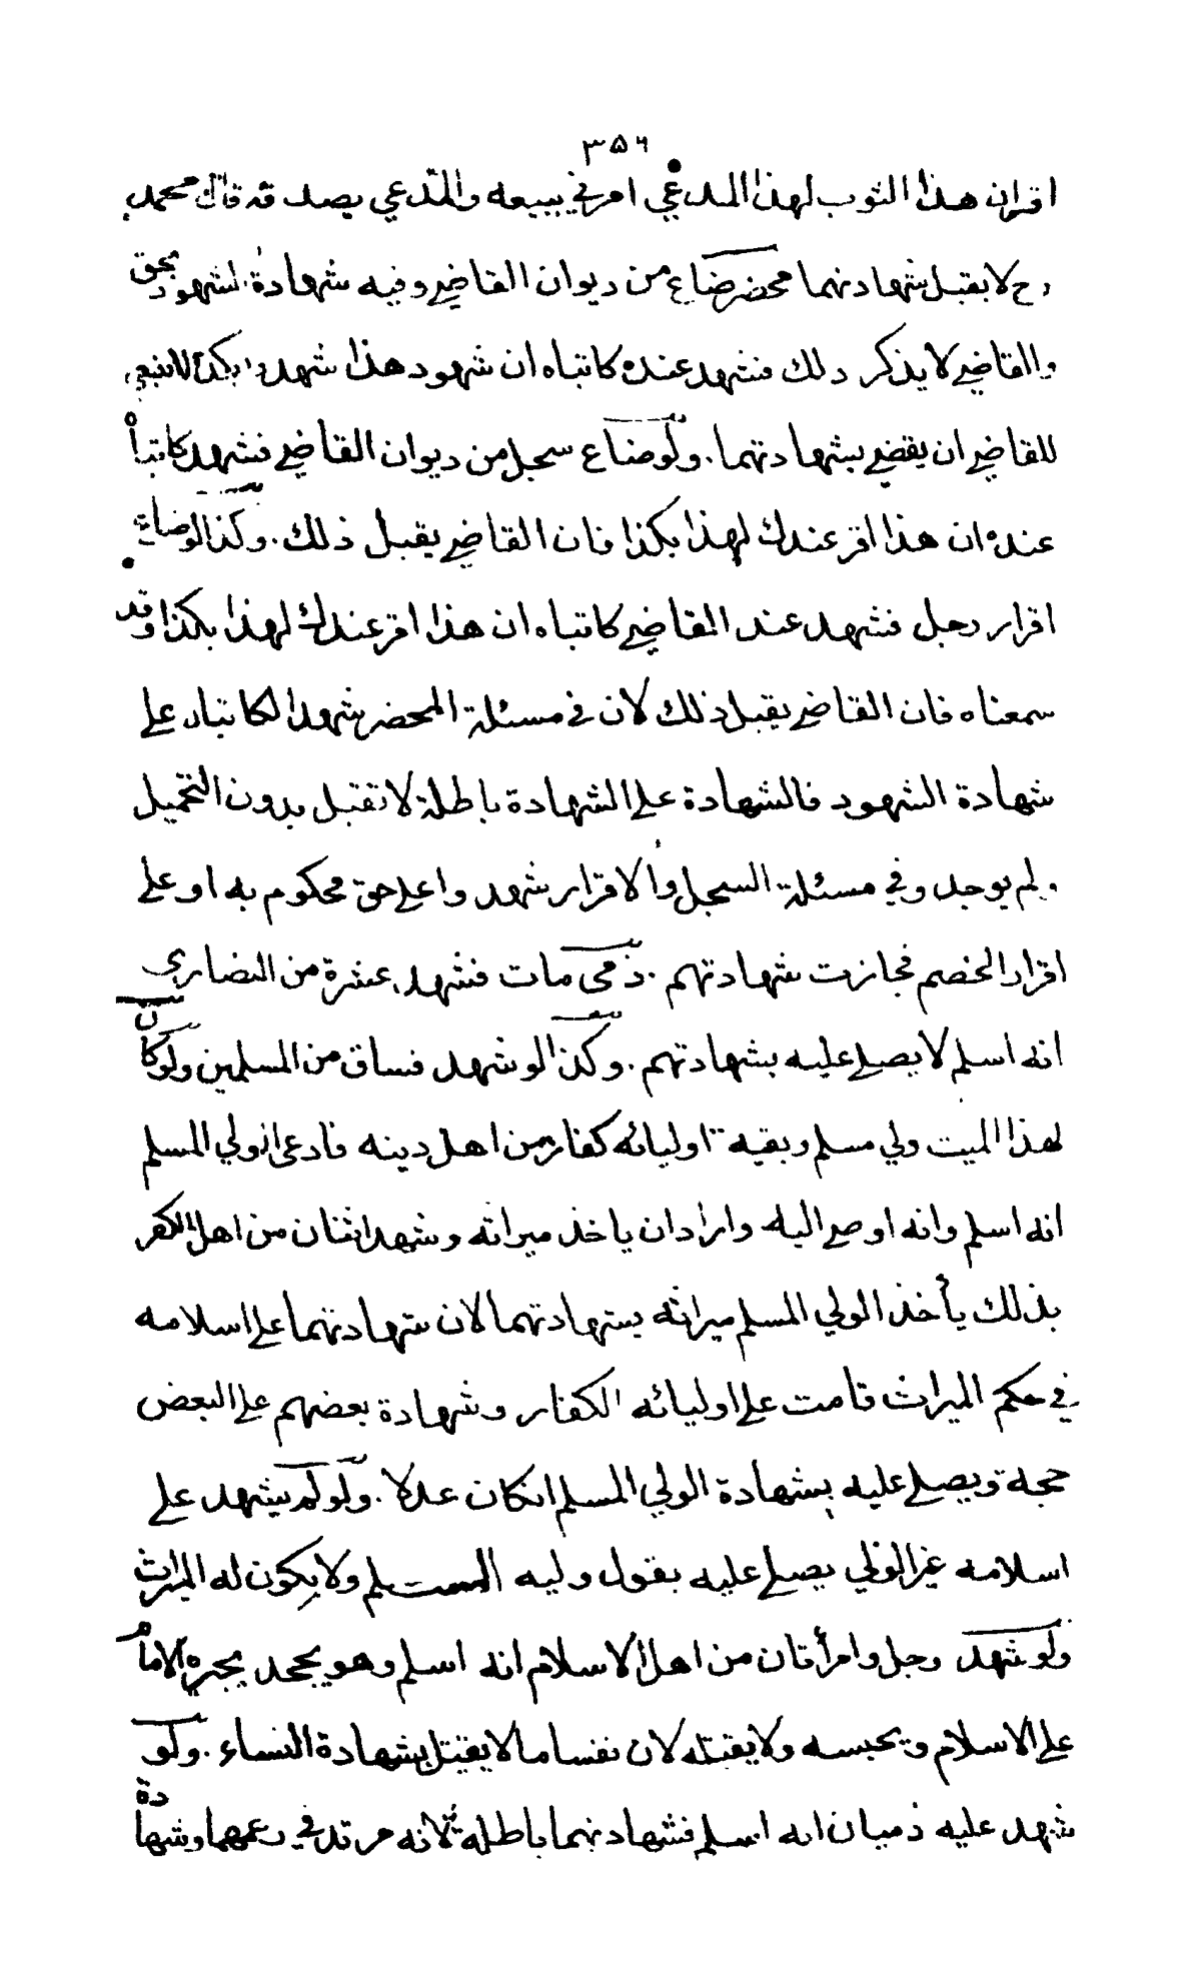 ٣٥٦
اقران هذا الثوب لهذا المدعي امرني ببيعه والمدعي يصدقه قال محمد
رح لا يقبل شهادتهما محضر ضاع من ديوان القاضي وفيه شهادة الشهود بحق
والقاضي لا يذكر ذلك فشهد عنده كاتباه ان شهود هذا شهدوا بكذا لا ينبغي
للقاضي ان يقضي بشهادتهما . ولو ضاع سجل من ديوان القاضي فشهد كاتبا
عنده ان هذا اقر عندك لهذا بكذا فان القاضي يقبل ذلك . وكذا لو ضاع
اقرار رجل فشهد عند القاضي كاتباه ان هذا اقر عندك لهذا بكذا وقد
سمعناه فان القاضي يقبل ذلك لان في مسئلة المحضر شهدا الكاتبان على
شهادة الشهود فالشهادة على الشهادة باطلة لا تقبل بدون التحميل
ولم يوجد وفي مسئلة السجل والاقرار شهدوا على حق محكوم به او على
اقرار الخصم فجازت شهادتهم . ذمي مات فشهد عشرة من النصارى
انه اسلم لا يصلى عليه بشهادتهم . وكذا لو شهد فساق من المسلمين ولو كان
لهذا الميت ولي مسلم وبقية اوليائه كفار من اهل دينه فادعى الولي المسلم
انه اسلم وانه اوصى اليه واراد ان ياخذ ميراثه وشهد اثنان من اهل الكفر
بذلك يأخذ الولي المسلم ميراثه بشهادتهما لان شهادتهما على اسلامه
في حكم الميراث قامت على اوليائه الكفار وشهادة بعضهم على البعض
حجة ويصلى عليه بشهادة الولي المسلم ان كان عدلا . ولو لم يشهد على
اسلامه غير الولي يصلى عليه بقول وليه المسلم ولا يكون له الميراث
ولو شهد رجل وامرأتان من اهل الاسلام انه اسلم وهو يجحد يجبره الامام
على الاسلام ويحبسه ولا يقتله لان نفسا ما لا يقتل بشهادة النساء . ولو
شهد عليه ذميان انه اسلم فشهادتهما باطلة لانه مرتد في زعمهما وشهادة